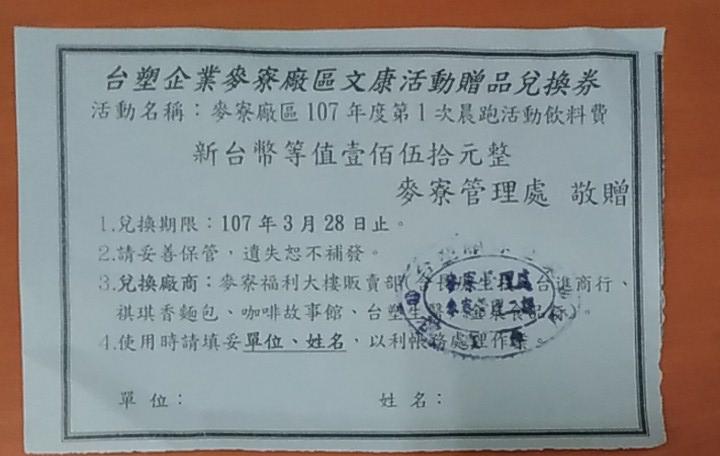 台塑企業麥寮廠區文康活動贈品兌換券
活動名稱：麥寮廠區107年度第1次晨跑活動飲料費
新台幣等值壹佰伍拾元整
麥寮管理處 敬贈
1.兌換期限：107年3月28日止。
2.請妥善保管，遺失恕不補發。
3.兌換廠商：麥寮福利大樓販賣部、長庚生技、台進商行、
祺琪香麵包、咖啡故事館、台塑生醫
4.使用時請填妥單位、姓名，以利帳務處理作業。
單位： 姓名：
麥寮管理處